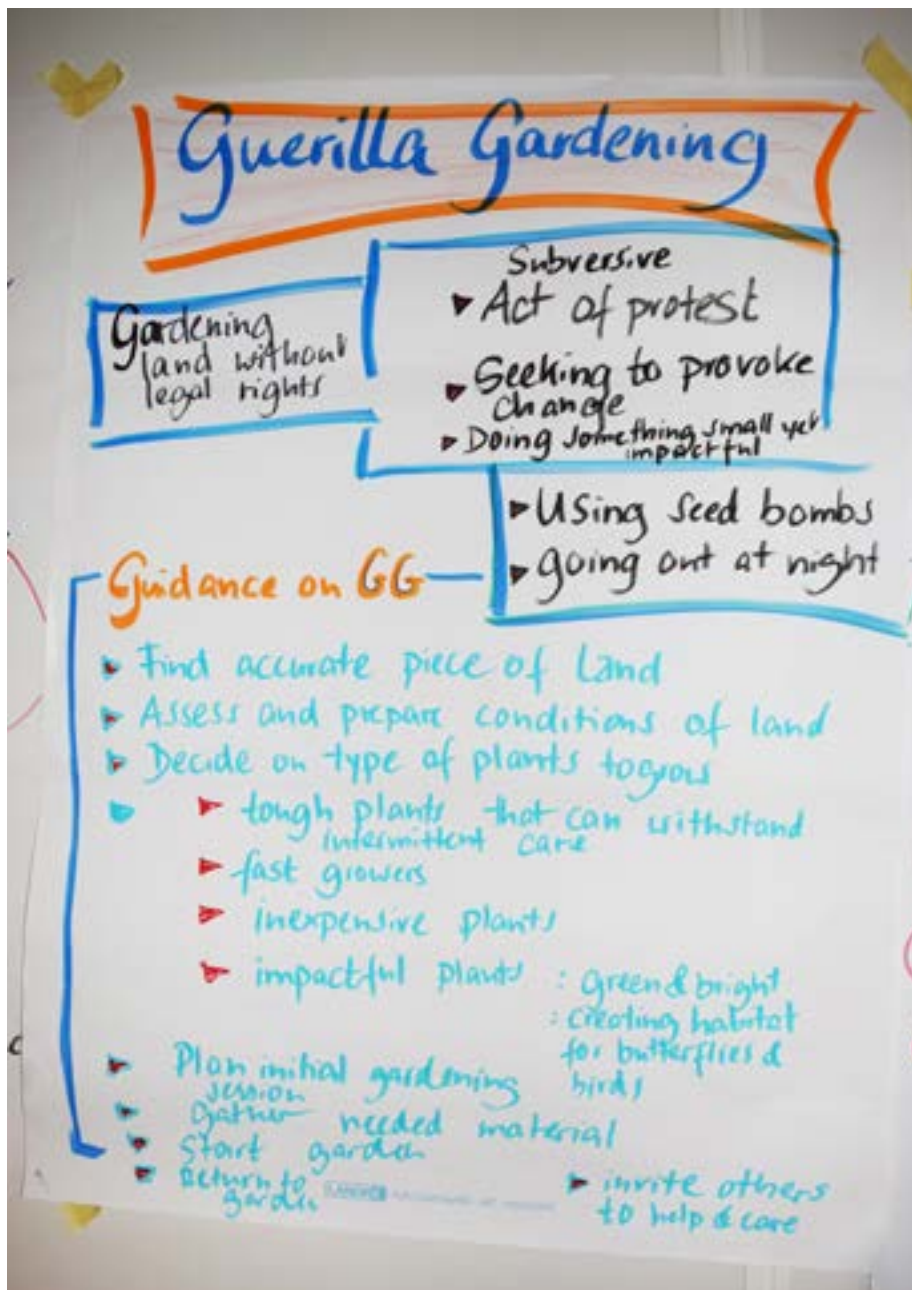 Guerilla Gardening
Gardening
land without
legal rights
Subversive
Act of protest
Seeking to provoke
change
Doing something small yet
impactful
Using seed bombs
going out at night
Guidance on GG
Find accurate piece of Land
Assess and prepare conditions of land
Decide on type of plants to grow
tough plants that can withstand
intermittent care
fast growers
inexpensive plants
impactful plants : green & bright
: creating habitat
for butterflies &
birds
Plan initial gardening
session
Gather needed material
Start garden
Return to
garden
invite others
to help & care